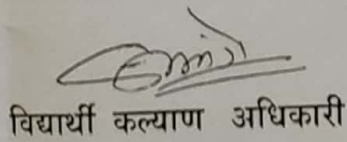 विद्यार्थी कल्याण अधिकारी